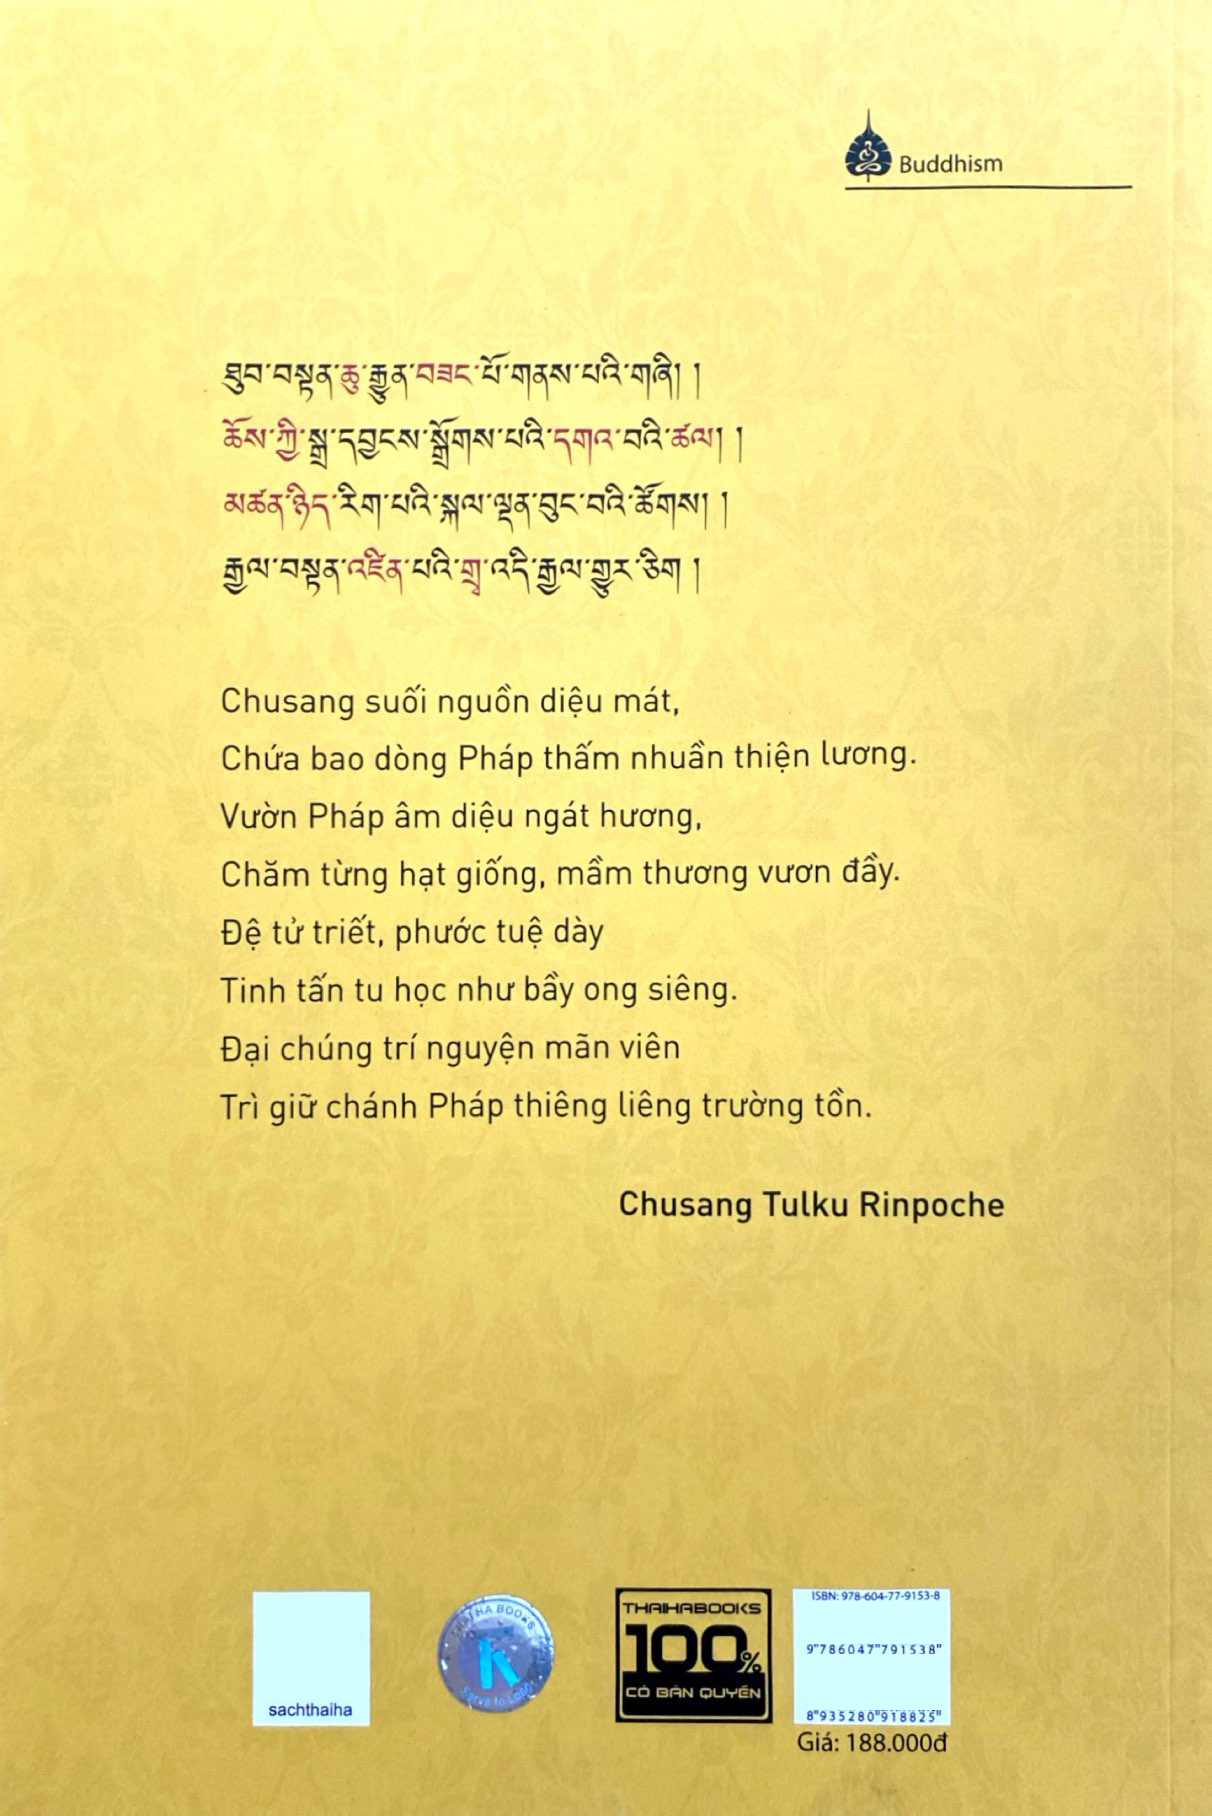 Buddhism
ཐུབ་བསྟན་ཆུ་རྒྱུན་བཟང་པོ་གནས་པའི་གཞི། །
ཆོས་ཀྱི་སྒྲ་དབྱངས་སྒྲོགས་པའི་དགའ་བའི་ཚལ། །
མཚན་ཉིད་རིག་པའི་སྐལ་ལྡན་བུང་བའི་ཚོགས། །
རྒྱལ་བསྟན་འཛིན་པའི་གྲྭ་འདི་རྒྱལ་གྱུར་ཅིག །
Chusang suối nguồn diệu mát,
Chứa bao dòng Pháp thấm nhuần thiện lương.
Vườn Pháp âm diệu ngát hương,
Chăm từng hạt giống, mầm thương vươn đầy.
Đệ tử triết, phước tuệ dày
Tinh tấn tu học như bầy ong siêng.
Đại chúng trí nguyện mãn viên
Trì giữ chánh Pháp thiêng liêng trường tồn.
Chusang Tulku Rinpoche
sachthaiha
THAIHA BOOKS
THAIHABOOKS
100%
CÓ BẢN QUYỀN
ISBN: 978-604-77-9153-8
9"786047"791538"
8"935280"918825"
Giá: 188.000đ